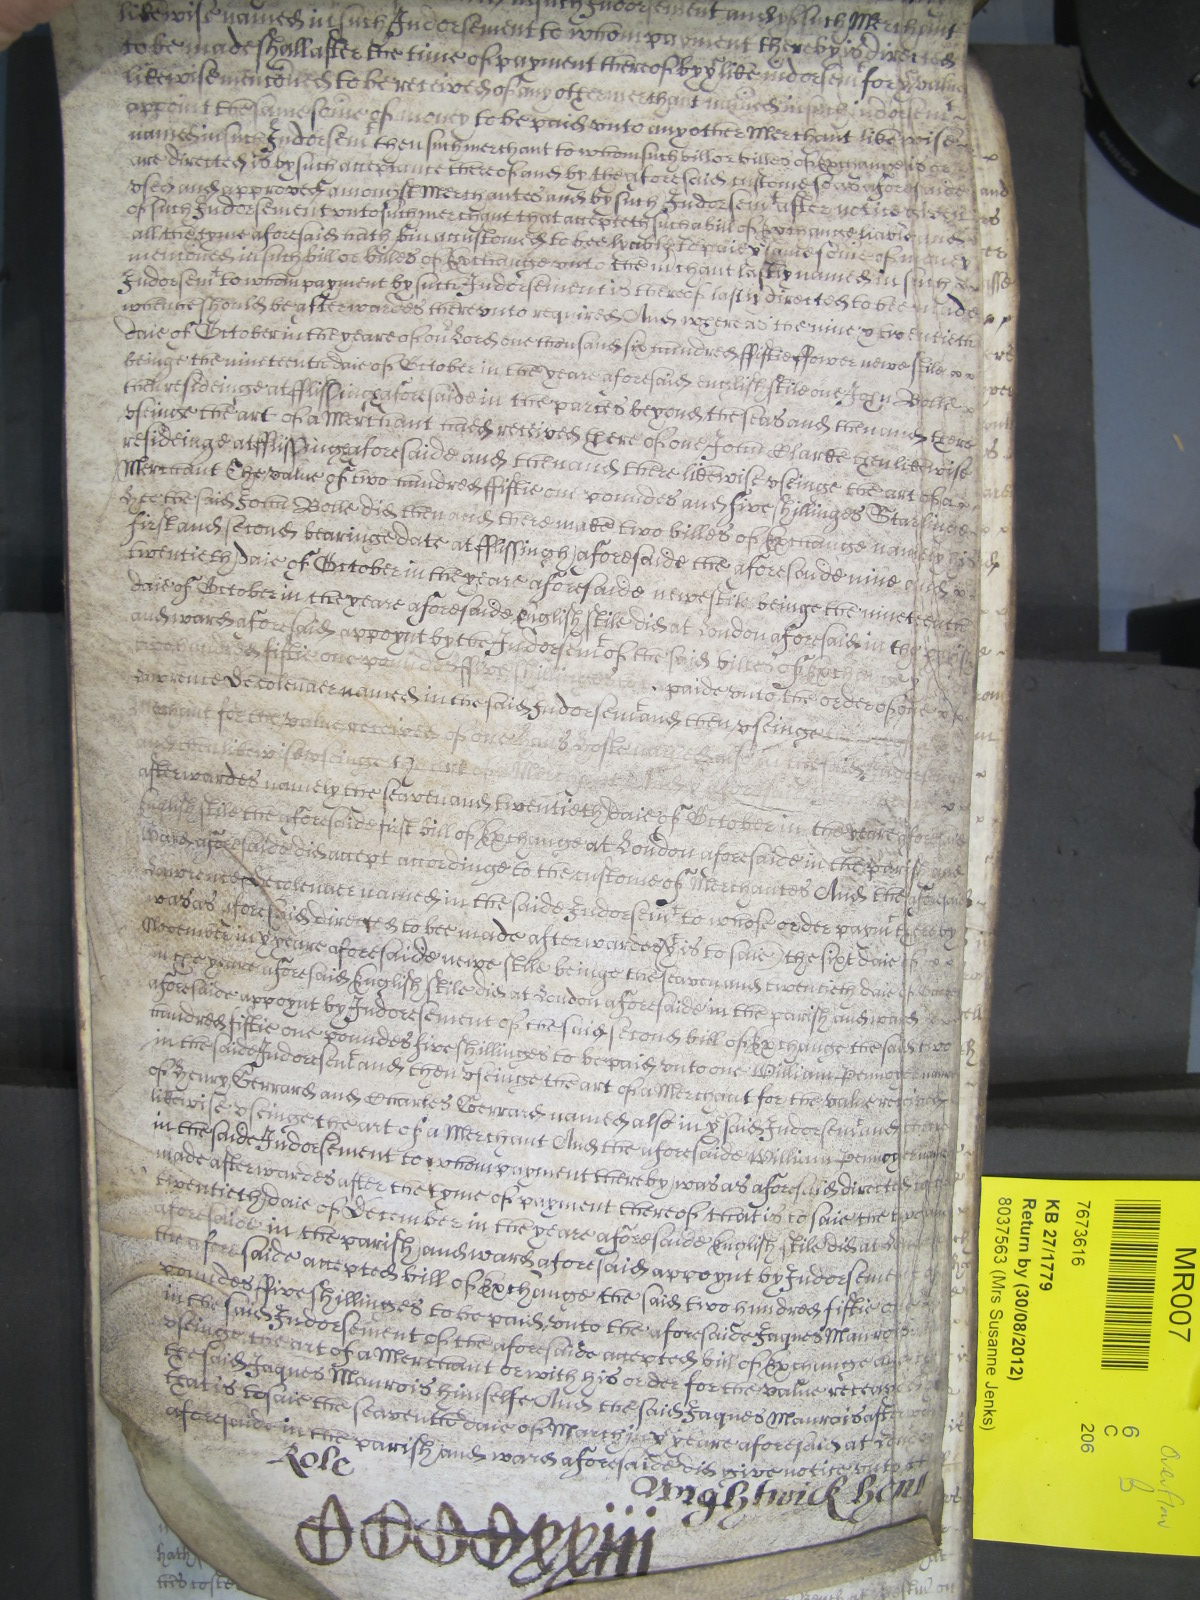 likewise named in such Indorsement to whom payment thereby is directed
to be made shall after the time of payment thereof by ye like indorsemt for ye value
likewise mentioned to be received of any other merchant named in such indorsemt
appoint the same some of money to be paid unto any other Merchant likewise
named in such Indorsemt then such merchant to whom such bill or billes of Exchange is or
are directed is by such acceptance thereof and by the aforesaid custome soe as aforesaide
used and approved amongst Merchantes and by such Indorsemt after notice given
of such Indorsement unto such merchant that accepteth such a bill of Exchange
all the tyme aforesaid hath bin accustomed to bee lyable to paie ye same some of money
menconed in such bill or billes of Exchange unto the mrchant lastly named in such
Indorsemt to whom payment by such Indorsement is thereof lastly directed to be made
when he should be afterwardes thereunto required And whereas the nine & twentieth
daie of October in the yeare of our Lord one thousand six hundred fiftie ffower newe stile
beinge the nineteenth daie of October in the yeare aforesaid english stile one John Bolle
then resideinge at fflissingh aforesaide in the partes beyond the seas and then and there
useinge the art of a Merchant haed received there of one John Clarke then likewise
resideinge at fflissingh aforesaide and then and there likewise useinge the art of a
Merchant The value of two hundred ffiftie one poundes and five shillinges Starlinge
hee the said John Bolle did then and there make two billes of Exchange namely his
first and second bearinge date at fflissingh aforesaide the aforesaide nine and
twentieth daie of October in the yeare aforesaide newe stile beinge the nineteenth
daie of October in the yeare aforesaide English stile did at London aforesaid in the parish
and ward aforesaid appoynt by the Indorsemt of the said billes of Exchange
hundred fiftie one poundes ffive shillinges paide unto the order of one
Lawrence Decolenaer named in the said Indorsemt and then useinge
Merchant for the value received of one Hans in the said Indorsemt
and then likewise useinge the art of a Merchant
afterwardes namely the seaven and twentieth daie of October in the yeare aforesaid
English stile the aforesaide first bill of Exchange at London aforesaide in the parish and
ward aforesaide did accept accordinge to the custome of Merchantes And the aforesaid
Lawrence Decolenaer named in the saide Indorsemt to whose order paymt thereby
was as aforesaid directed to bee made afterwardes (yt is to saie) the sixt daie of
November in ye yeare aforesaide newe stile beinge the seaven and twentieth daie of October
in the yeare aforesaid English stile did at London aforesaide in the parish and ward
aforesaide appoynt by Indorsement of the said second bill of Exchange the said two
hundred fiftie one poundes five shillinges to be paid unto one William Pennoyer named
in the saide Indorsemt and then useinge the art of a Merchant for the value received
of Henry Gerrard and Charles Gerrard named also in ye said Indorsemt and then
likewise useinge the art of a Merchant And the aforesaide William Pennoyer named
in the saide Indorsement to whom payment thereby was as aforesaid directed to be
made afterwardes after the tyme of payment thereof that is to saie the
twentieth daie of December in the yeare aforesaide English stile did at London
aforesaide in the parish and ward aforesaid appoynt by Indorsement of
the aforesaide accepted bill of Exchange the said two hundred fiftie one
poundes ffive shillinges to be paid unto the aforesaide Jaques Maurois
in the said Indorsement of the aforesaide accepted bill of Exchange
useinge the art of a Merchant or with his order for the value received
the said Jaques Maurois himselfe And the said Jaques Maurois afterwards
that is to saie the seaventh daie of March in ye yeare aforesaid at London
aforesaide in the parish and ward aforesaide did give notice unto
Role
Wightwick
CCCCxxiii
MR007
7673616
KB 27/1779
Return by (30/08/2012)
8037563 (Mrs Susanne Jenks)
6
C
206
Overflow